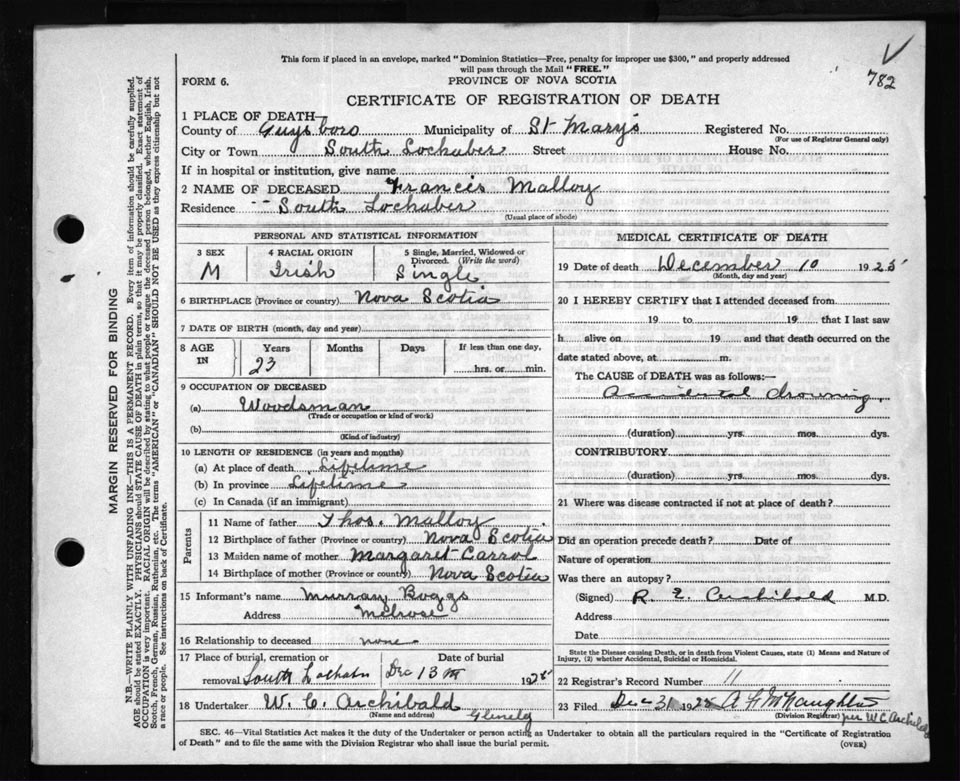 This form if placed in an envelope, marked "Dominion Statistics—Free, penalty for improper use $300," and properly addressed
will pass through the Mail "FREE."
782
FORM 6.
PROVINCE OF NOVA SCOTIA
CERTIFICATE OF REGISTRATION OF DEATH
1 PLACE OF DEATH—
County of Guysboro Municipality of St Mary's Registered No.
(For use of Registrar General only)
City or Town South Lochaber Street House No.
If in hospital or institution, give name
2 NAME OF DECEASED Francis Malloy
Residence South Lochaber
(Usual place of abode)
PERSONAL AND STATISTICAL INFORMATION
3 SEX M
4 RACIAL ORIGIN Irish
5 Single, Married, Widowed or Divorced. (Write the word) Single
6 BIRTHPLACE (Province or country) Nova Scotia
7 DATE OF BIRTH (month, day and year)
8 AGE IN Years Months Days If less than one day,
23 hrs. or min.
9 OCCUPATION OF DECEASED
(a) Woodsman
(Trade or occupation or kind of work)
(b)
(Kind of industry)
10 LENGTH OF RESIDENCE (in years and months)
(a) At place of death Lifetime
(b) In province Lifetime
(c) In Canada (if an immigrant)
Parents
11 Name of father Thos. Malloy
12 Birthplace of father (Province or country) Nova Scotia
13 Maiden name of mother Margaret Carrol
14 Birthplace of mother (Province or country) Nova Scotia
15 Informant's name Murray Boggs
Address Melrose
16 Relationship to deceased none
17 Place of burial, cremation or Date of burial
removal South Lochabr Dec 13th 1925
18 Undertaker W. C. Archibald
(Name and address) Glenelg
MEDICAL CERTIFICATE OF DEATH
19 Date of death December 10 1925
(Month, day and year)
20 I HEREBY CERTIFY that I attended deceased from
19 to 19 that I last saw
h alive on 19 and that death occurred on the
date stated above, at m.
The CAUSE of DEATH was as follows:—
Accidental drowning.
(duration) yrs. mos. dys.
CONTRIBUTORY
(duration) yrs. mos. dys.
21 Where was disease contracted if not at place of death?
Did an operation precede death? Date of
Nature of operation
Was there an autopsy?
(Signed) Archibald M.D.
Address
Date
State the Disease causing Death, or in death from Violent Causes, state (1) Means and Nature of
Injury, (2) whether Accidental, Suicidal or Homicidal.
22 Registrar's Record Number 11
23 Filed Dec 31 1925 A F McNaughton
(Division Registrar) per W C Archibald
SEC. 46—Vital Statistics Act makes it the duty of the Undertaker or person acting as Undertaker to obtain all the particulars required in the "Certificate of Registration
of Death" and to file the same with the Division Registrar who shall issue the burial permit.
(OVER)
MARGIN RESERVED FOR BINDING
N.B.—WRITE PLAINLY WITH UNFADING INK—THIS IS A PERMANENT RECORD. Every item of information should be carefully supplied.
AGE should be stated EXACTLY. PHYSICIANS should STATE CAUSE OF DEATH in plain terms, so that it may be properly classified. Exact statement of
OCCUPATION is very important. RACIAL ORIGIN will be described by stating to what people or tongue the deceased person belonged, whether English, Irish,
Scotch, French, German, Russian, Ruthenian, etc. The terms "AMERICAN" or "CANADIAN" SHOULD NOT BE USED as they express citizenship but not
a race or people. See instructions on back of Certificate.